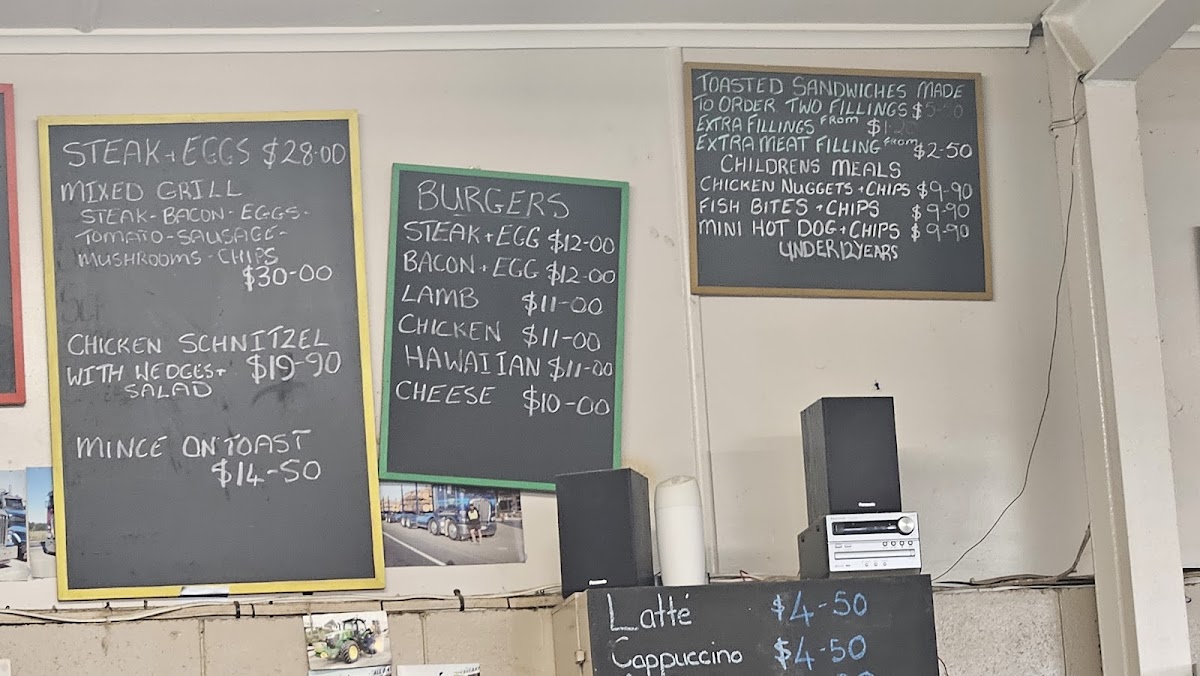 STEAK + EGGS $28-00
MIXED GRILL
STEAK - BACON - EGGS -
TOMATO - SAUSAGE -
MUSHROOMS - CHIPS
$30-00
CHICKEN SCHNITZEL
WITH WEDGES + $19-90
SALAD
MINCE ON TOAST
$14-50
BURGERS
STEAK + EGG $12-00
BACON + EGG $12-00
LAMB $11-00
CHICKEN $11-00
HAWAIIAN $11-00
CHEESE $10-00
TOASTED SANDWICHES MADE
TO ORDER TWO FILLINGS $5-50
EXTRA FILLINGS FROM $1-20
EXTRA MEAT FILLING FROM $2-50
CHILDRENS MEALS
CHICKEN NUGGETS + CHIPS $9-90
FISH BITES + CHIPS $9-90
MINI HOT DOG + CHIPS $9-90
UNDER 12 YEARS
Panasonic
Panasonic
Latté $4-50
Cappuccino $4-50